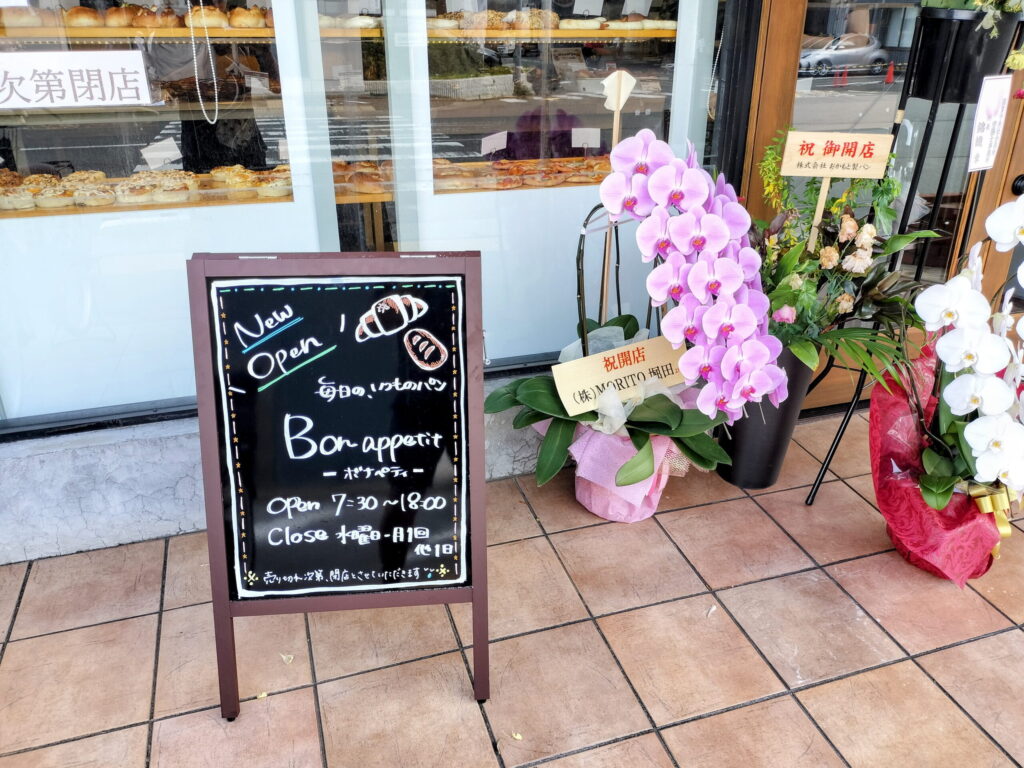 次第閉店
New
Open
毎日の、いつものパン
Bon appetit
ーボナペティー
open 7:30～18:00
Close 水曜日-月1回
他1日
売り切れ次第、閉店とさせていただきます
祝開店
(株)MORITO 堀田
祝 御開店
株式会社 おかもと製パン